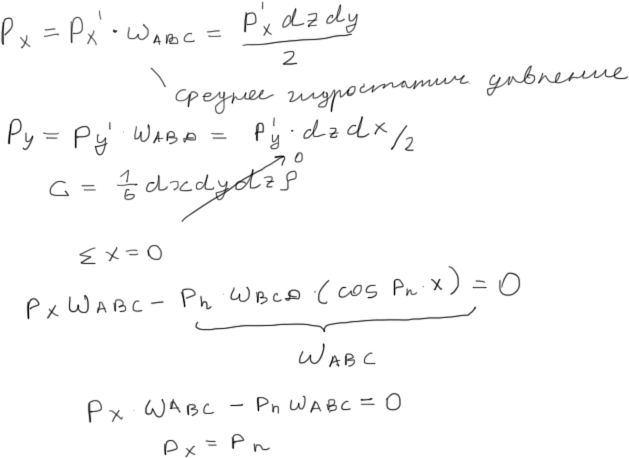 Pₓ = Pₓ' · ω_ABC = Pₓ' dz dy / 2
среднее гидростатич давление
Py = Py' ω_ABD = Py' · dz dx / 2
G = 1/6 dx dy dz ρ 0
Σ x = 0
Pₓ ω_ABC − Pₙ ω_BCD · (cos Pₙ · x) = 0
ω_ABC
Pₓ · ω_ABC − Pₙ ω_ABC = 0
Pₓ = Pₙ